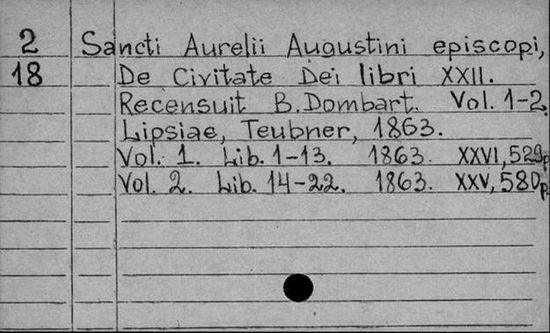 2 Sancti Aurelii Augustini episcopi,
18 De Civitate Dei libri XXII.
Recensuit B. Dombart. Vol. 1-2.
Lipsiae, Teubner, 1863.
Vol. 1. Lib. 1-13. 1863. XXVI, 529p
Vol. 2. Lib. 14-22. 1863. XXV, 580p.